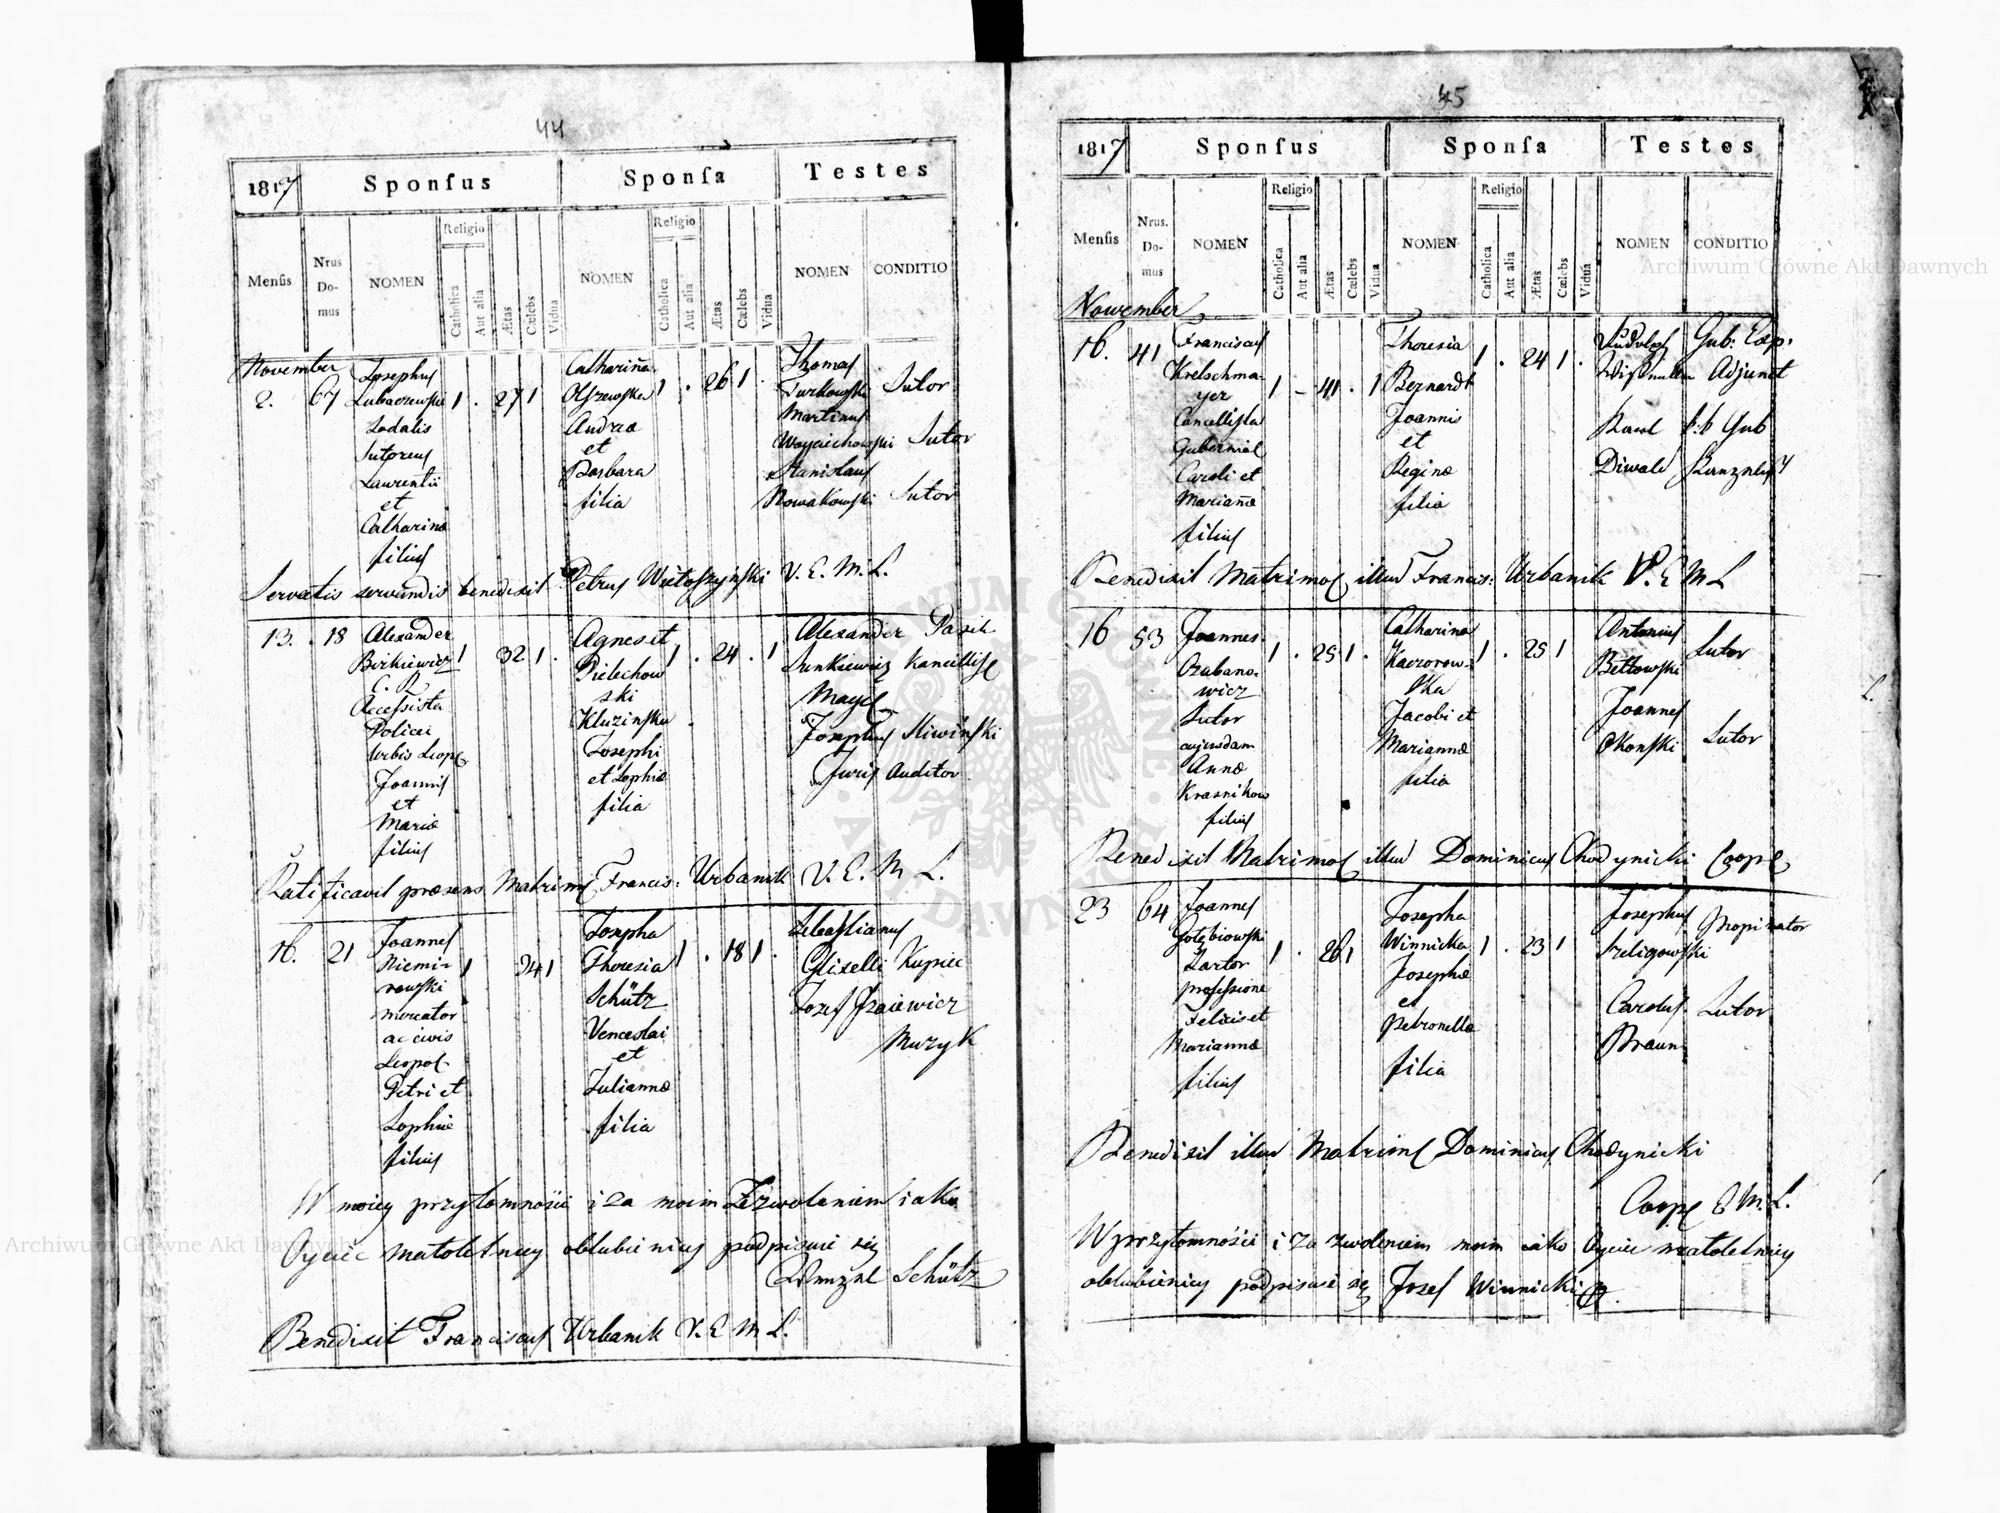 44
1817
Sponsus
Sponsa
Testes
Mensis
Nrus Do-mus
NOMEN
Religio
Catholica
Aut alia
Ætas
Cælebs
Vidua
NOMEN
Religio
Catholica
Aut alia
Ætas
Cælebs
Vidua
NOMEN
CONDITIO
November
2.
67
Josephus
Lubaczewski
Sodalis
Sutorum
Laurentii
et
Catharinæ
filius
1 . 27 1
Catharina
Olszewska
Andreæ
et
Barbara
filia
1 . 26 1 .
Thomas
Turkowski
Sutor
Martinus
Woyciechowski
Sutor
Stanislaus
Nowakowski
Sutor
Servatis servandis benedixit Petrus Wietoszyński V. E. M. L.
13. . 18
Alexander
Birkiewicz
C. R.
Accessista
Policei
Urbis Leopo
Joannis
et
Mariæ
filius
1 32 1 .
Agnes
Kluzinska
Josephi
et Sophiæ
filia
1 . 24 . 1
Alexander
Josephus Sliwinski
Juris Auditor
Ratificavit præsens Matrim Francis: Urbanik V. E. M L.
16. 21
Joannes
Niemi-
rowski
mercator
ac civis
Leopol
Petri et
Sophiæ
filius
1 34 1
Josepha
Theresia
Schütz
Venceslai
et
Juliannæ
filia
1 . 18 1 .
Sebastianus
Glixelli Kupiec
Jozef
Muzyk
W moiey przytomnosci i za moim Zezwoleniem iako
Oyciec matoletniey oblubienicy podpisuie się
Schütz
Benedixit Franciscus Urbanik V. E M L.
45
1817
Sponsus
Sponsa
Testes
Mensis
Nrus. Do-mus
NOMEN
Religio
Catholica
Aut alia
Ætas
Cælebs
Vidua
NOMEN
Religio
Catholica
Aut alia
Ætas
Cælebs
Vidua
NOMEN
CONDITIO
November
16. 41
Franciscus
Kretschma-
yer
Cancellista
Gubernial
Caroli et
Mariannæ
filius
1 - 41 . 1
Theresia
Bernardt
Joannis
et
Reginæ
filia
1 . 24 1 .
Rudolf
Gub: Exp.
Adjunct
Karl
k:k Gub
Diwald
Kanzelist
Benedixit Matrimo illud Francis: Urbanik V. E M L
16 53
Joannes
Czabano-
wicz
Sutor
cujusdam
Annæ
Krasnikow
filius
1 . 25 1 .
Catharina
Kaczorow-
ska
Jacobi et
Mariannæ
filia
1 . 25 1
Antonius
Betlowski
Sutor
Joannes
Okonski
Sutor
Benedixit Matrimo illud Dominicus Chodynicki Coope
23 64
Joannes
Gołębiowski
Sartor
professione
Felicis et
Mariannæ
filius
1 . 26 1
Josepha
Winnicka
Josephi
et
Petronellæ
filia
1 . 23 1
Josephus
Szeligowski
Propinator
Carolus
Braun
Sutor
Benedixit illud Matrim Dominicus Chodynicki
Coope E M. L.
W przytomności i za zwoleniem moim iako Oyciec matoletniey
oblubienicy podpisuie się Josef Winnicki
Archiwum Główne Akt Dawnych
Archiwum Główne Akt Dawnych
ARCHIWUM GŁÓWNE AKT DAWNYCH